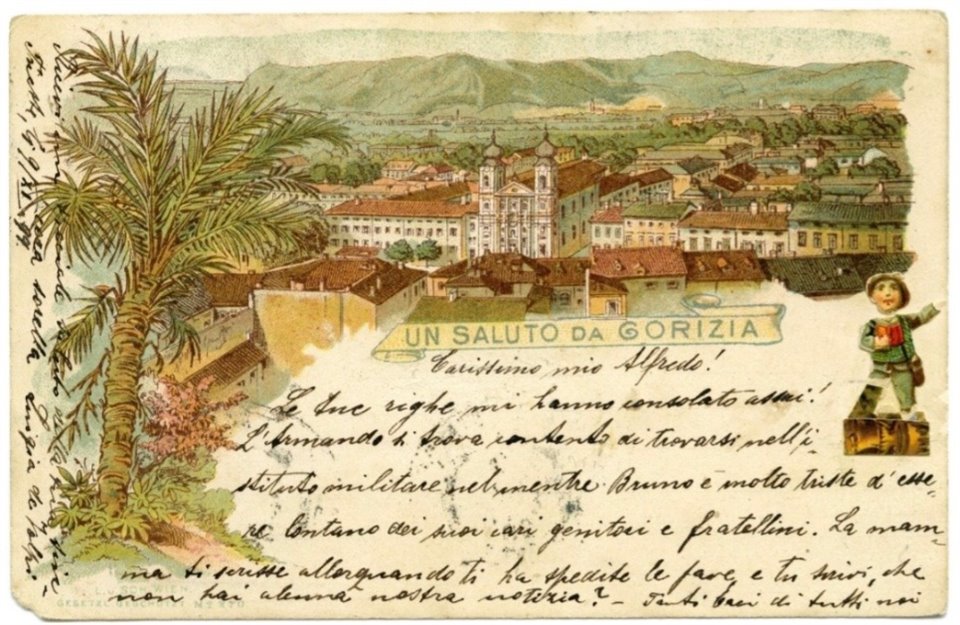 UN SALUTO DA GORIZIA
Carissimo mio Alfredo!
Le tue righe mi hanno consolato assai!
L'Armando si trova contento di trovarsi nell'i
stituto militare nel mentre Bruno è molto triste d'esse-
re lontano dei suoi cari genitori e fratellini. La mam-
ma ti scrisse allorquando ti ha spedite le fave, e tu scrivi, che
non hai alcuna nostra notizia? – Tanti baci di tutti noi
tua sorella Luigia
Trieste, 6/9 XI
GESETZL. GESCHÜTZT